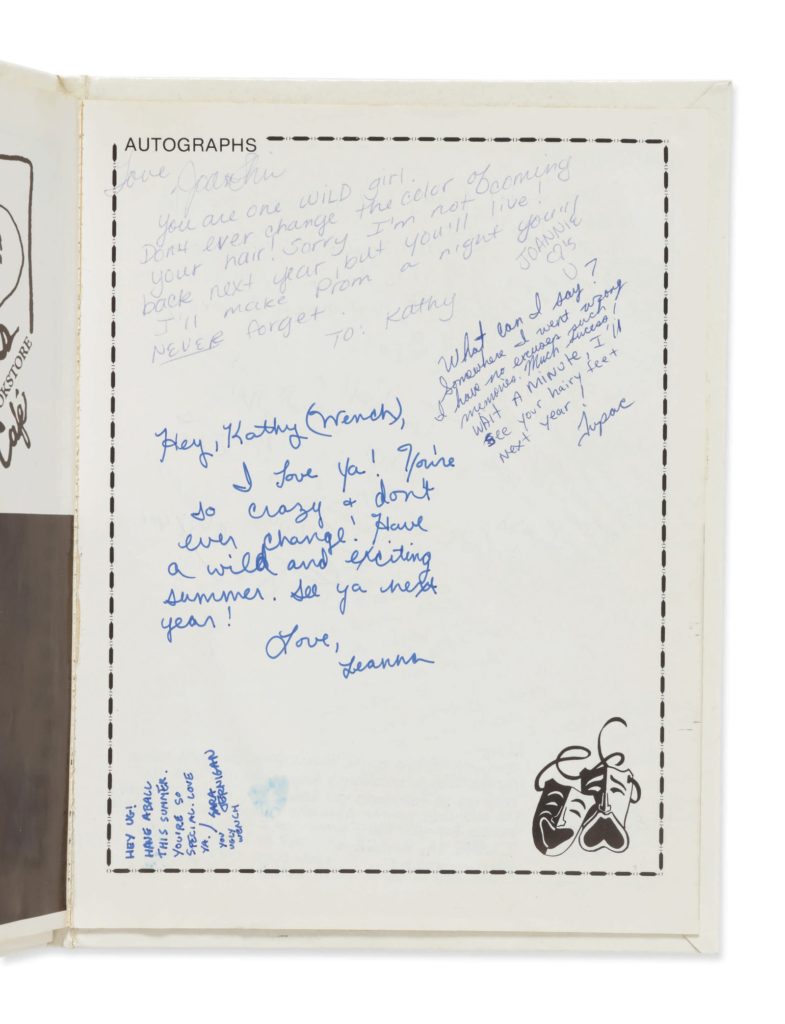 OKSTORE
Café
AUTOGRAPHS
Love
You are one WILD girl.
Don't ever change the color of
your hair! Sorry I'm not ocoming
back next year, but you'll live!
I'll make Prom a night you'll
NEVER forget.
TO: Kathy
JOANNIE
What can I say?
Somewhere I went wrong
I have no excuses such
memories. Much Sucess!
WAIT A MINUTE, I'll
see your hairy feet
next year!
Tupac
Hey, Kathy (Wench),
I love ya! You're
so crazy & don't
ever change! Have
a wild and exciting
summer. See ya next
year!
Love,
Leanna
HEY UG!
HAVE A BALL
THIS SUMMER.
YOU'RE SO
SPECIAL. LOVE
YA. / SARA
JERNIGAN
YOU
UGLY
WENCH